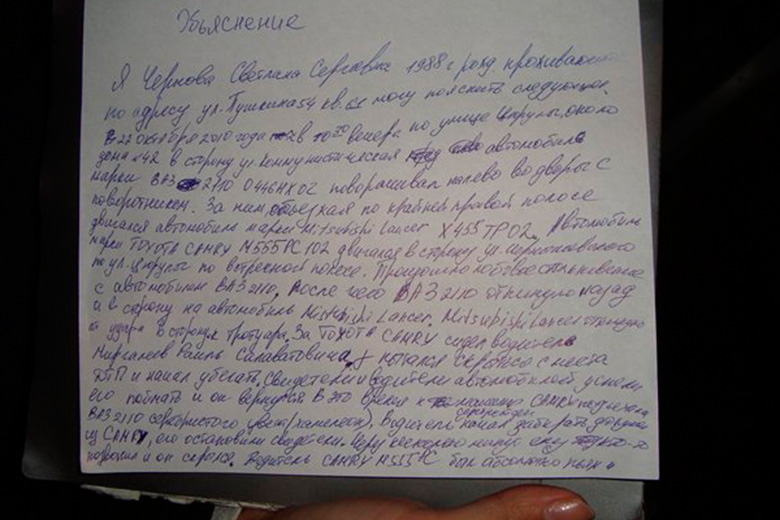 Объяснение
Я Чернова Светлана Сергеевна 1988 г рожд. проживающая
по адресу ул. Пушкина 54 кв. 61 могу пояснить следующее.
В 22 октября 2010 года в 10 30 вечера по улице Цюрупы, около
дома 42 в сторону ул. Коммунистическая автомобиль
марки ВАЗ 2110 О446НХ02 поворачивал налево во дворы с
поворотником. За ним, объезжая по крайней правой полосе
двигался автомобиль марки Mitsubishi Lancer Х455ТР02. Автомобиль
марки TOYOTA CAMRY М555РС 102 двигался в сторону ул. Чернышевского
по ул. Цюрупы по встречной полосе. Произошло лобовое столкновение
с автомобилем ВАЗ 2110. После чего ВАЗ 2110 откинуло назад
и в сторону на автомобиль Mistubishi Lancer. Mitsubishi Lancer откинуло
от удара в сторону тротуара. За TOYOTA CAMRY сидел водитель
Рамиль Салаватович, пытался скрыться с места
ДТП и начал убегать. Свидетели и водители автомобилей
его поймать и он вернулся. В это время к CAMRY подъехала
ВАЗ 2110 серебристого цвета (хамелеон). Водитель начал забирать
из CAMRY, его остановили свидетели. Через несколько минут ему кто-то
позвонил и он скрылся. Водитель CAMRY М555РС был абсолютно пьян.